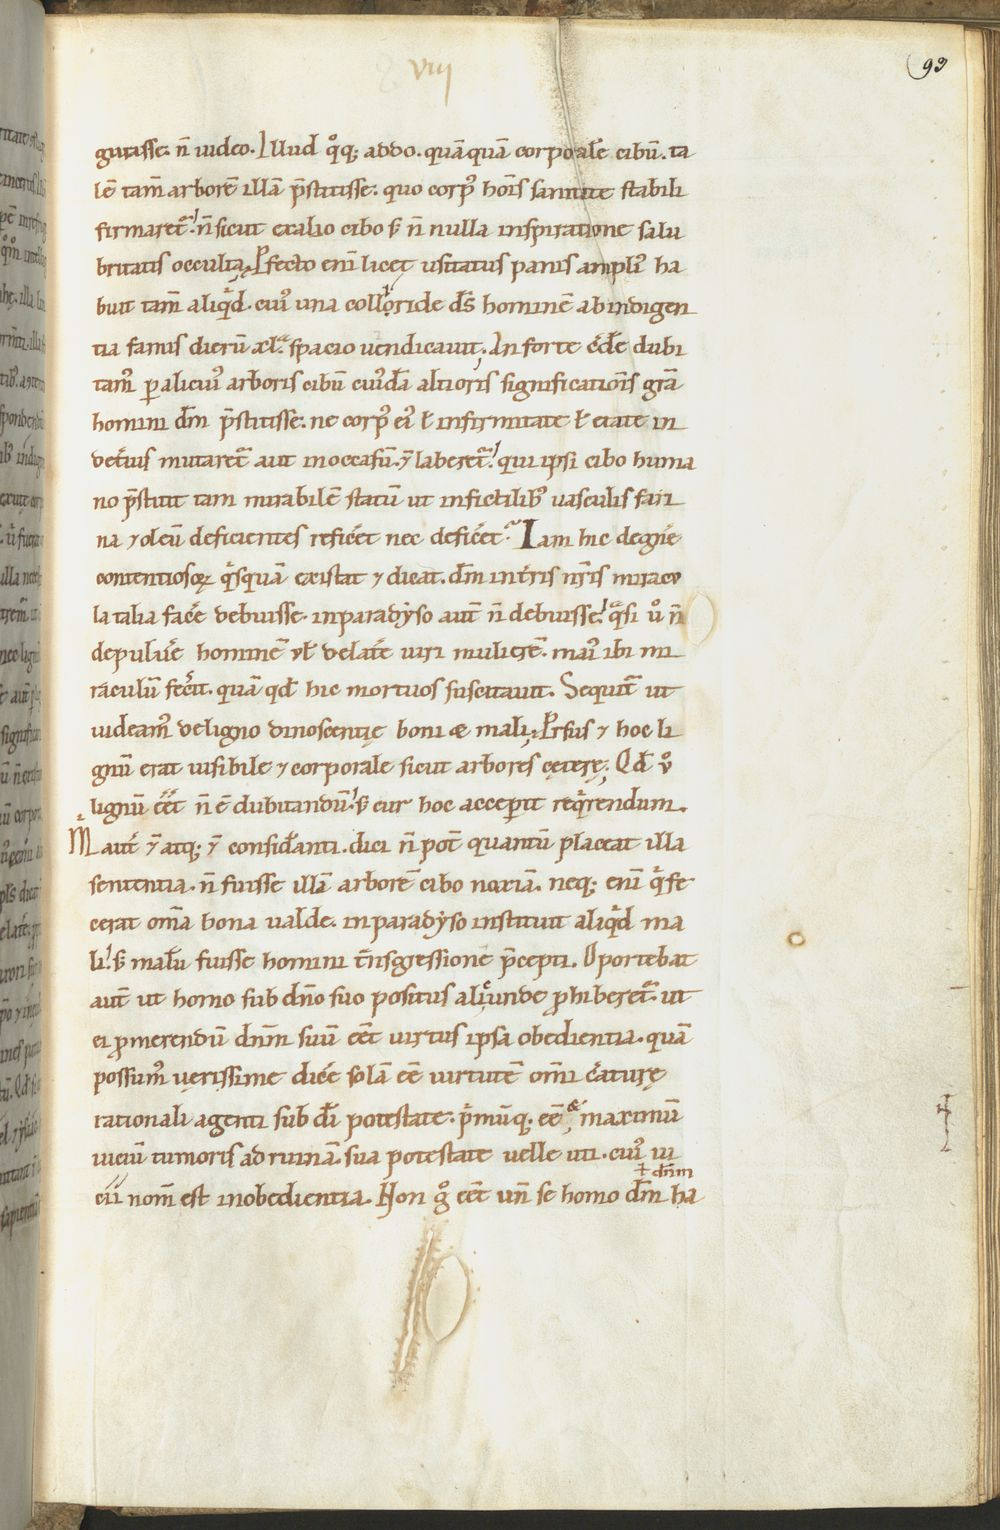 viii
93
gutisse. n̄ uideo. Illud qͦq; addo. quāquā corporale cibū. ta
lē tam̄ arborē illā p̄stitisse. quo corpꝰ hoīs sanitate stabili
firmaretᷣ. n̄ sicut exalio cibo s; n̄ nulla inspiratione salu
britatis occulta. Pfecto enī licet usitatus panis ampliꝰ ha
buit tam̄ aliqͥd. cuiꝰ una colloride ds̄ hominē abindigen
tia famis dierū xl.ᵗᵃ spacio uendicauit. An forte cͬde dubi
tamꝰ ꝑ alicuiꝰ arboris cibū cuiꝰdā altioris significatiōis grā
homini dm̄ p̄stitisse. ne corpꝰ eiꝰ ł infirmitate ł etate in
detͬius mutaretᷣ aut inoccasū. ⁊ laberetᷣ. qui ipsi cibo huma
no p̄stitit tam mirabilē statū ut infictilibꝰ uasculis fari
na ⁊ oleū deficientes reficͬet nec deficͬet. Iam hic degñe
contentiosoꝝ qͥsquā existat ⁊ dicat. dm̄ intͬris nr̄is miracu
la talia facͬe debuisse. inparadyso aut̄ n̄ debuisse. qͣsi uͦ n̄
depuluͬe hominē ul̄ delatͬe uiri mulierē. maiꝰ ibi mi
raculū fecͬit. quā qd̄ hic mortuos suscitauit. Sequitᷣ ut
uideamꝰ deligno dinoscentię boni æ mali. Prsus ⁊ hoc li
gnū erat uisibile ⁊ corporale sicut arbores cęterę. Qd̄ uͦ
lignū eēt n̄ ē dubitandū. s; cur hoc acceperit reqͥrendum.
M autͬ ⁊ atq; ⁊ considͬanti. dici n̄ pot̄ quantū placeat illa
sententia. n̄ fuisse illā arborē cibo noxiā. neq; enī qͥ fe
cerat om̄a bona ualde. inparadyso instituit aliqͥd ma
li. s; malū fuisse homini tͬnsgressione p̄cepti. Oportebat
aut̄ ut homo sub dn̄o suo positus aliͨunde ꝓhiberetᷣ. ut
ei ꝓmerendū dn̄m suū eēt uirtus ipsa obedientia. quā
possumꝰ uęrissime dicͬe solā eē uirtutē om̄i cͬaturę
rationali agenti sub dī potestate. pͥmūq; eē ⁊ maximū
uiciū tumoris ad ruinā. sua potestate uelle uti. cuiꝰ ui
÷ dn̄m
cii nom̄ est inobedientia. Non gͦ eēt un̄ se homo dm̄ ha